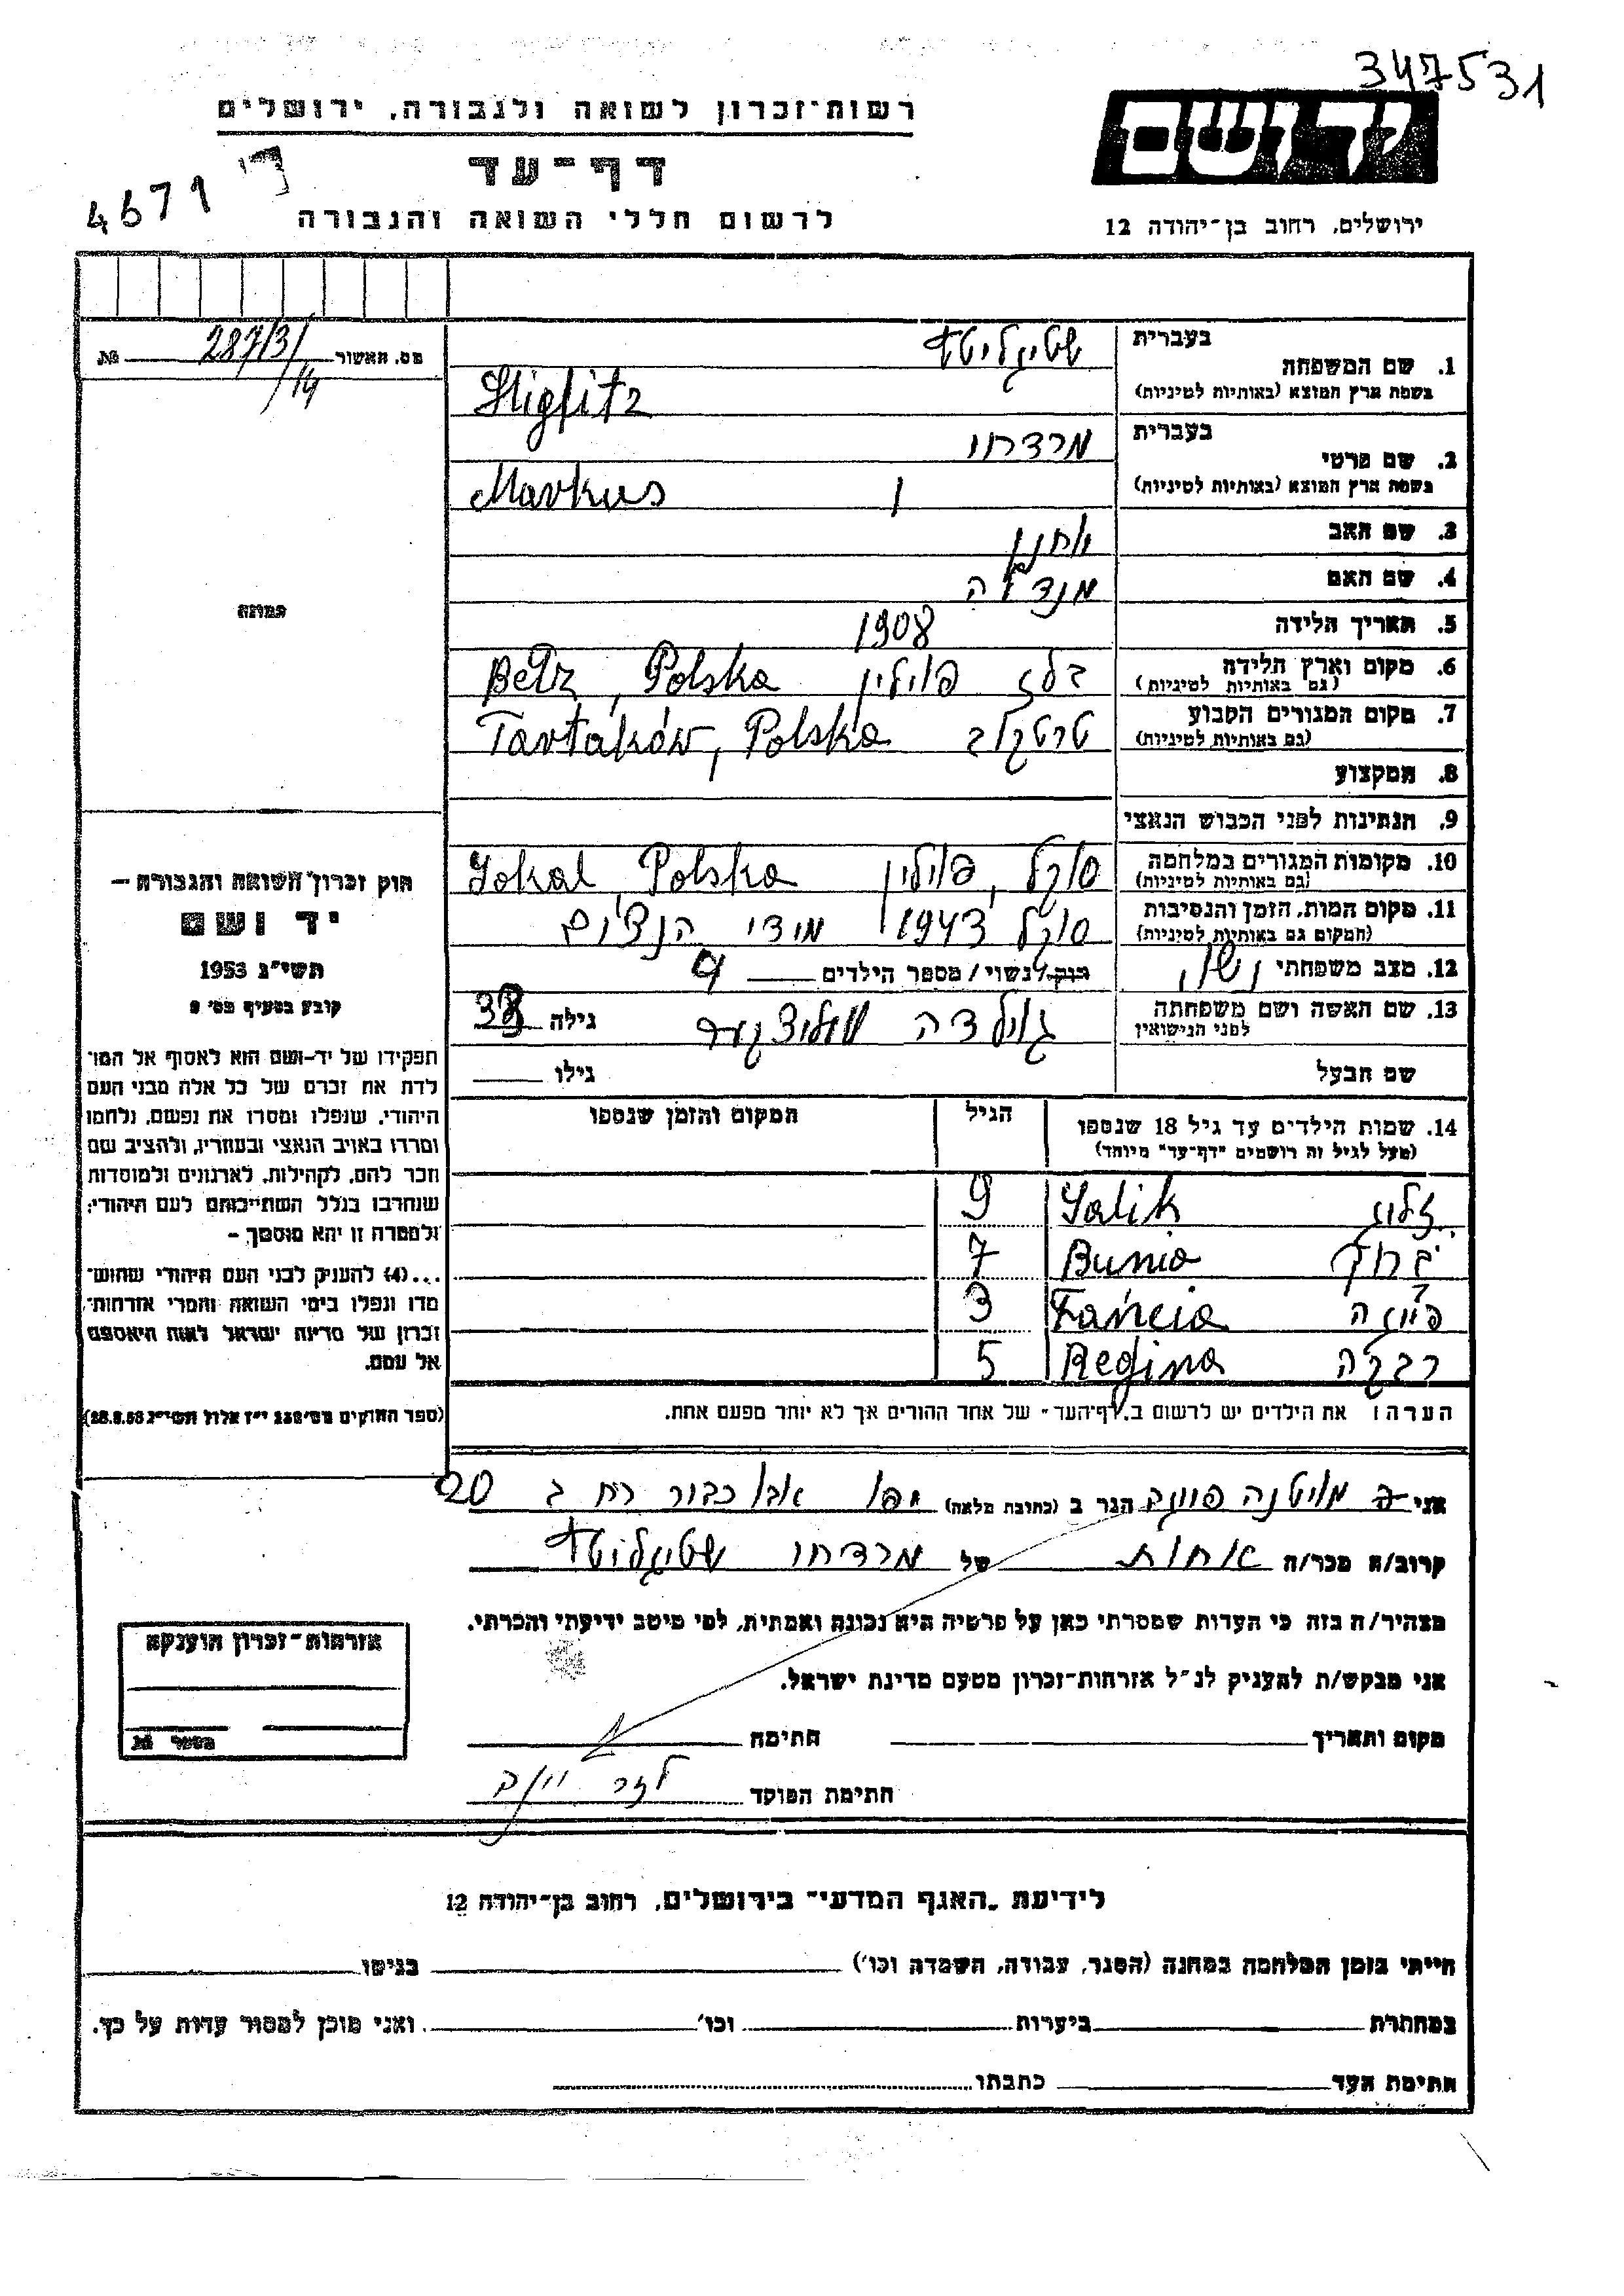 347531
רשות־זכרון לשואה ולגבורה, ירושלים
יד ושם
דף־עד
4671
לרשום חללי השואה והגבורה
ירושלים, רחוב בן־יהודה 12
מס. האשור 287/3/14
בעברית שטיגליטץ
1. שם המשפחה
בשפת ארץ המוצא (באותיות לטיניות) Stiglitz
בעברית מרדחו
2. שם פרטי
בשפת ארץ המוצא (באותיות לטיניות) Markus
3. שם האב
4. שם האם
5. תאריך הלידה 1908
6. מקום וארץ הלידה בלז פולין Betz, Polska
(גם באותיות לטיניות)
7. מקום המגורים הקבוע טרטקוב Tartaków, Polska
(גם באותיות לטיניות)
8. המקצוע
9. הנתינות לפני הכבוש הנאצי
10. מקומות המגורים במלחמה סוקל, פולין Sokal Polska
(גם באותיות לטיניות)
11. מקום המות, הזמן והנסיבות סוקל 1943 מידי הנצים
(המקום גם באותיות לטיניות)
12. מצב משפחתי נשוי רווק/נשוי/מספר הילדים 4
13. שם האשה ושם משפחתה גולדה גילה 38
לפני הנישואין
שם הבעל גילו
14. שמות הילדים עד גיל 18 שנספו הגיל המקום והזמן שנספו
(מעל לגיל זה רושמים "דף־עד" מיוחד)
Salik 9
Bunia 7
Fańcia 3
רבקה Regina 5
הערה: את הילדים יש לרשום ב"דף־העד" של אחד ההורים אך לא יותר מפעם אחת.
תמונה
חוק זכרון השואה והגבורה —
יד ושם
תשי"ג 1953
קובע בסעיף מס' 2
תפקידו של יד־ושם הוא לאסוף אל המו־
לדת את זכרם של כל אלה מבני העם
היהודי, שנפלו ומסרו את נפשם, נלחמו
ומרדו באויב הנאצי ובעוזריו, ולהציב שם
וזכר להם, לקהילות, לארגונים ולמוסדות
שנחרבו בגלל השתייכותם לעם היהודי;
ולמטרה זו יהא מוסמך —
...(4) להעניק לבני העם היהודי שהוש־
מדו ונפלו בימי השואה והמרי אזרחות־
זכרון של מדינת ישראל לאות היאספם
אל עמם.
(ספר החוקים מס' 132 י"ז אלול תשי"ג 28.8.53)
אני הגר ב (כתובת מלאה) יפו אבו כבור רח ב 20
קרוב/ה מכר/ה אחות של מרדחו שטיגליטץ
מצהיר/ה בזה כי העדות שמסרתי כאן על פרטיה היא נכונה ואמתית, לפי מיטב ידיעתי והכרתי.
אני מבקש/ת להעניק לנ"ל אזרחות־זכרון מטעם מדינת ישראל.
מקום ותאריך חתימה
חתימת הפוקד
אזרחות־זכרון הוענקה
מספר
לידיעת "האגף המדעי" בירושלים, רחוב בן־יהודה 12
הייתי בזמן המלחמה במחנה (הסגר, עבודה, השמדה וכו') בגיטו
במחתרת ביערות וכו' ואני מוכן למסור עדות על כך.
חתימת העד כתבתו